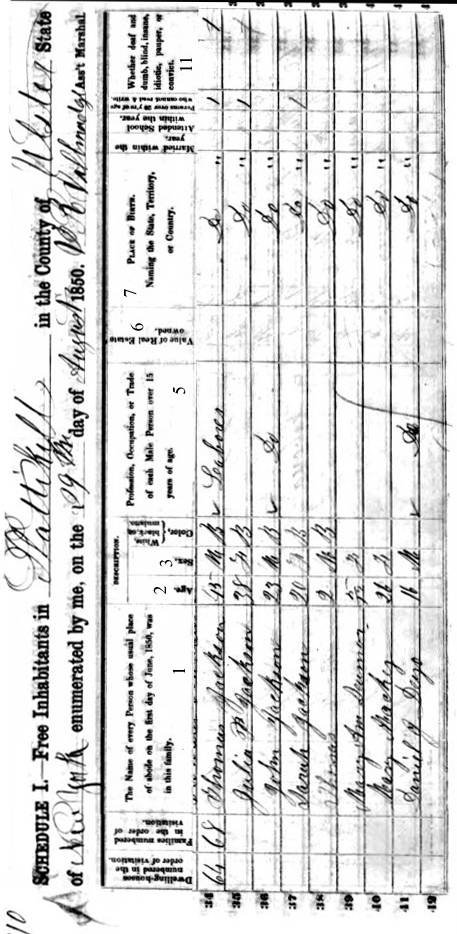 SCHEDULE I.—Free Inhabitants in Plattekill in the County of Ulster State
of New York enumerated by me, on the 29th day of August 1850. Ass't Marshal
Dwelling-houses numbered in the order of visitation.
Families numbered in the order of visitation.
The Name of every Person whose usual place of abode on the first day of June, 1850, was in this family.
1
DESCRIPTION.
2 Age.
3 Sex.
White, black or mulatto. Color,
Profession, Occupation, or Trade of each Male Person over 15 years of age.
5
6 Value of Real Estate owned.
7 PLACE OF BIRTH. Naming the State, Territory, or Country.
Married within the year.
Attended School within the year.
Persons over 20 y'rs of age who cannot read & write.
Whether deaf and dumb, blind, insane, idiotic, pauper, or convict.
11
34 64 68 Thomas Jackson 45 M B Laborer Do " 1 1
35 Julia Jackson 38 F B Do " 1
36 John Jackson 23 M B Do Do "
37 Sarah Jackson 20 F B Do " 1
38 Thomas 2 M B Do "
39 Mary Ann F Do "
40 Mary Mackey 26 F Do "
41 Daniel 16 M Do Do "
42